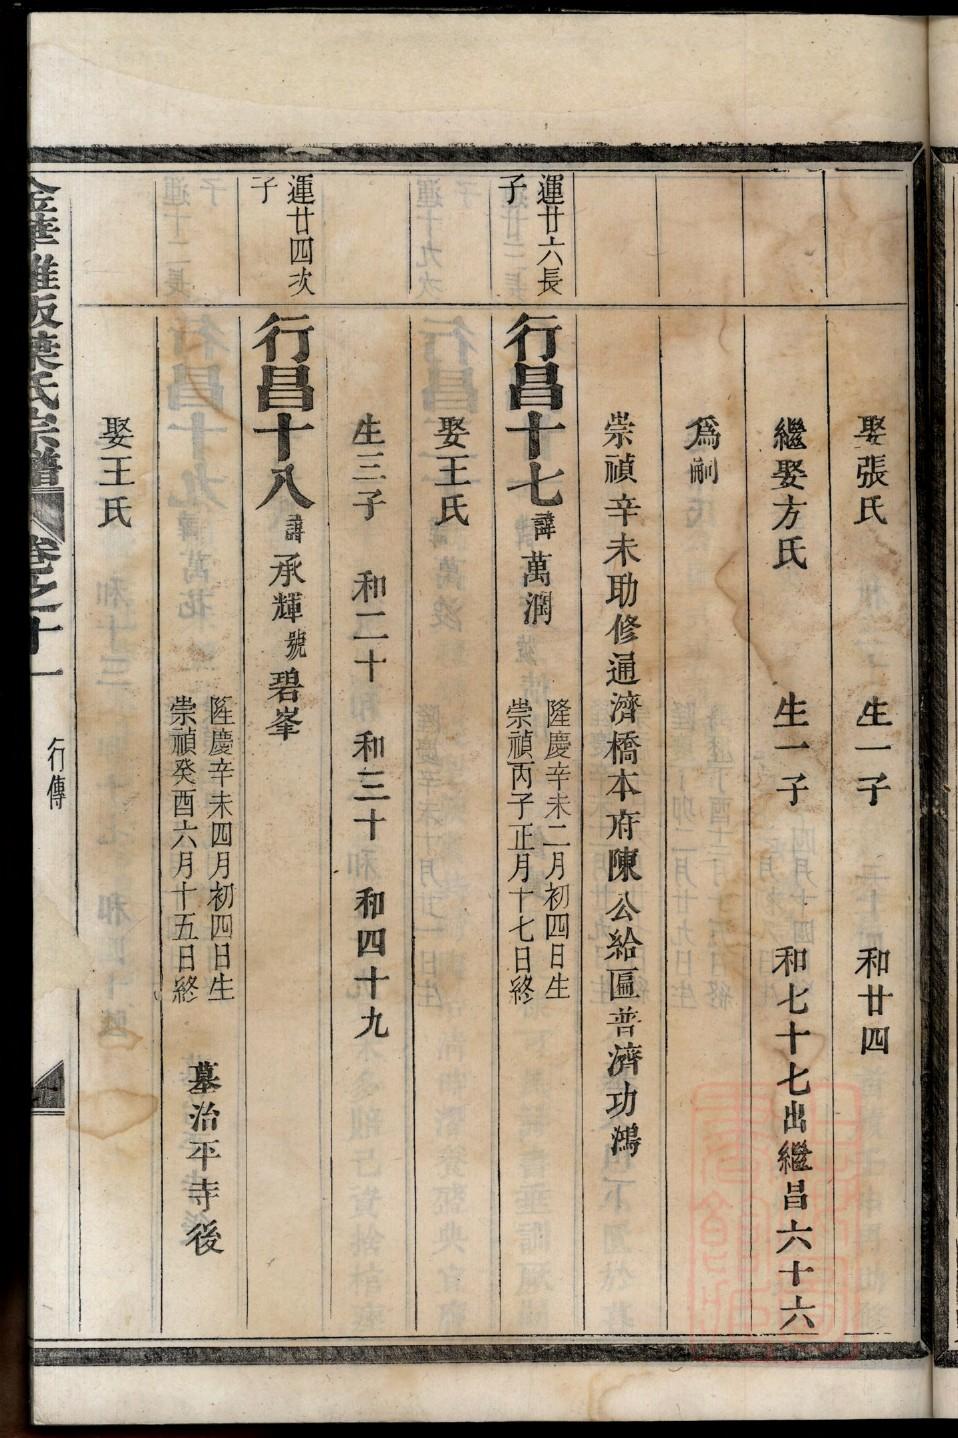 娶張氏　生一子　和廿四
繼娶方氏　生一子　和七十七出繼昌六十六
爲嗣
崇禎辛未助修通濟橋本府陳公給匾普濟功鴻
運廿六長子
行昌十七　諱萬潤　隆慶辛未二月初四日生
崇禎丙子正月十七日終
娶王氏
生三子　和二十　和三十　和四十九
運廿四次子
行昌十八　諱承輝　號碧峯
隆慶辛未四月初四日生
崇禎癸酉六月十五日終　墓治平寺後
娶王氏
金華雅畈葉氏宗譜　卷之十一　行傳